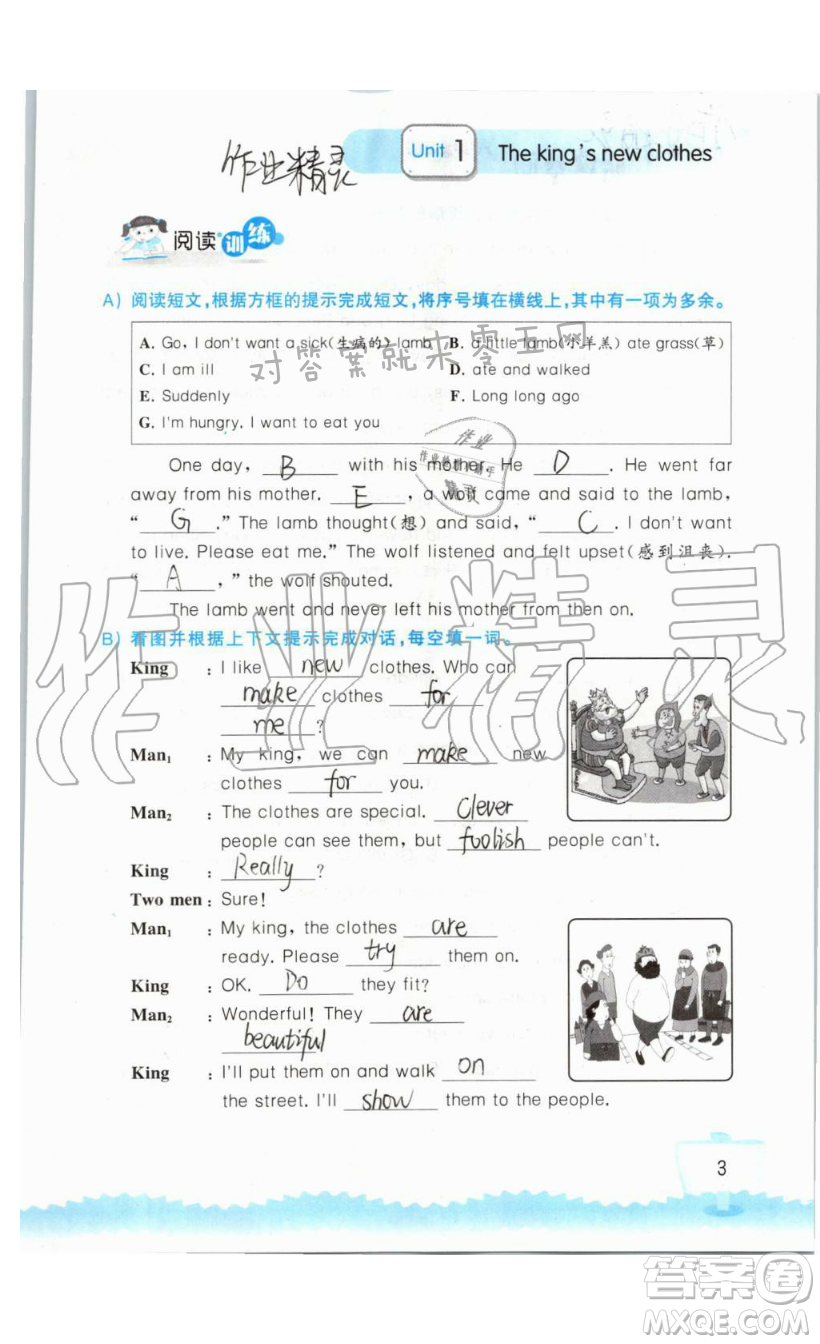 作业精灵
Unit 1 The king's new clothes
阅读训练
A) 阅读短文,根据方框的提示完成短文,将序号填在横线上,其中有一项为多余。
A. Go, I don't want a sick(生病的) lamb B. a little lamb(小羊羔) ate grass(草)
C. I am ill D. ate and walked
E. Suddenly F. Long long ago
G. I'm hungry. I want to eat you
对答案就来零五网
One day, B with his mother. He D. He went far
away from his mother. E, a wolf came and said to the lamb,
“ G .” The lamb thought(想) and said, “ C . I don't want
to live. Please eat me.” The wolf listened and felt upset(感到沮丧).
“ A ,” the wolf shouted.
The lamb went and never left his mother from then on.
B) 看图并根据上下文提示完成对话,每空填一词。
King : I like new clothes. Who can
make clothes for
me ?
Man1 : My king, we can make new
clothes for you.
Man2 : The clothes are special. Clever
people can see them, but foolish people can't.
King : Really ?
Two men : Sure!
Man1 : My king, the clothes are
ready. Please try them on.
King : OK. Do they fit?
Man2 : Wonderful! They are
beautiful
King : I'll put them on and walk on
the street. I'll show them to the people.
3
作业精灵
答案卷
MXQE.COM